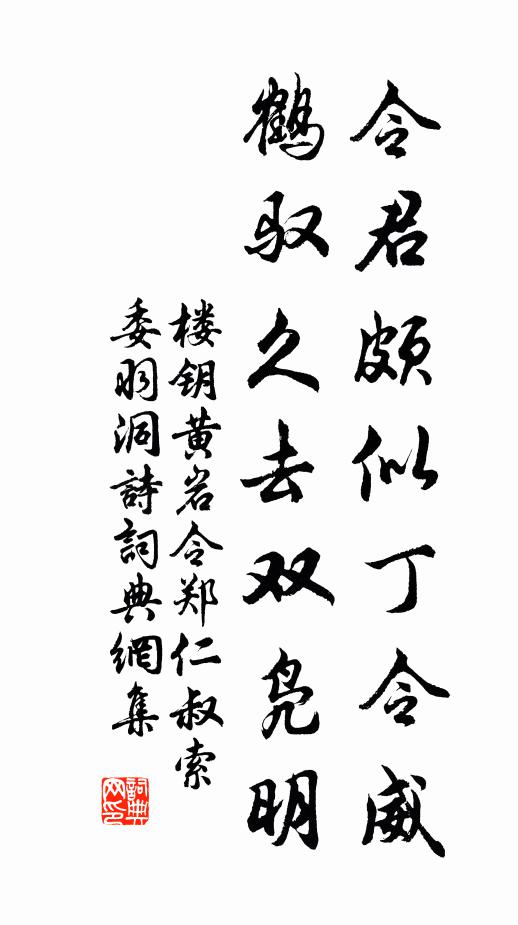 令君颇似丁令威
鹤驭久去双凫明
楼钥黄岩令郑仁叔索
委羽洞詩詞典網集
詞典
网印